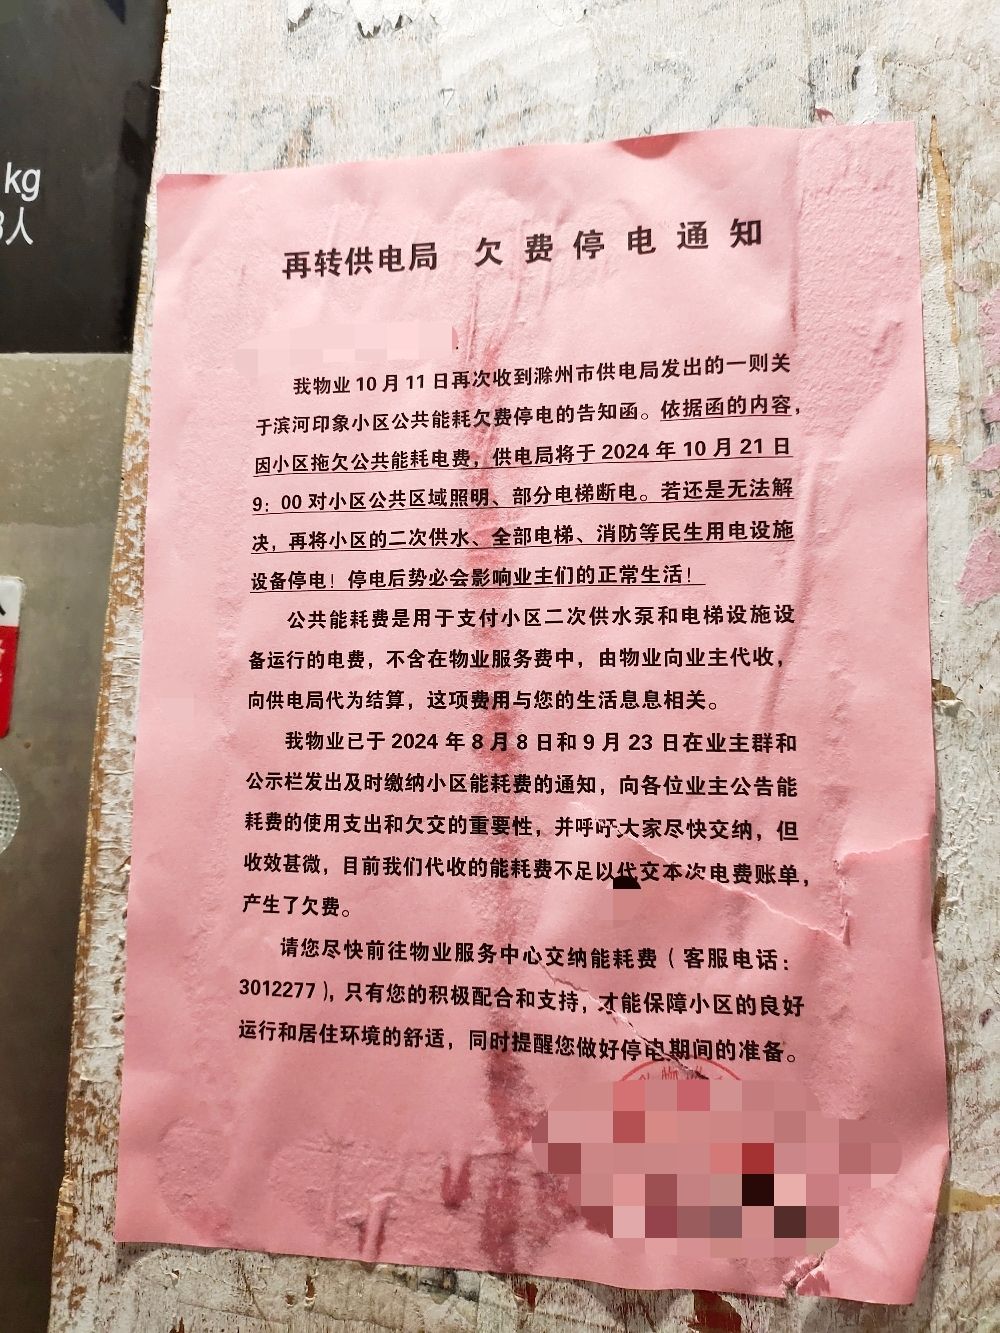 kg
人
再转供电局 欠费停电通知
我物业10月11日再次收到滁州市供电局发出的一则关
于滨河印象小区公共能耗欠费停电的告知函。依据函的内容，
因小区拖欠公共能耗电费，供电局将于2024年10月21日
9：00对小区公共区域照明、部分电梯断电。若还是无法解
决，再将小区的二次供水、全部电梯、消防等民生用电设施
设备停电！停电后势必会影响业主们的正常生活！
公共能耗费是用于支付小区二次供水泵和电梯设施设
备运行的电费，不含在物业服务费中，由物业向业主代收，
向供电局代为结算，这项费用与您的生活息息相关。
我物业已于2024年8月8日和9月23日在业主群和
公示栏发出及时缴纳小区能耗费的通知，向各位业主公告能
耗费的使用支出和欠交的重要性，并呼吁大家尽快交纳，但
收效甚微，目前我们代收的能耗费不足以代交本次电费账单，
产生了欠费。
请您尽快前往物业服务中心交纳能耗费（客服电话：
3012277），只有您的积极配合和支持，才能保障小区的良好
运行和居住环境的舒适，同时提醒您做好停电期间的准备。